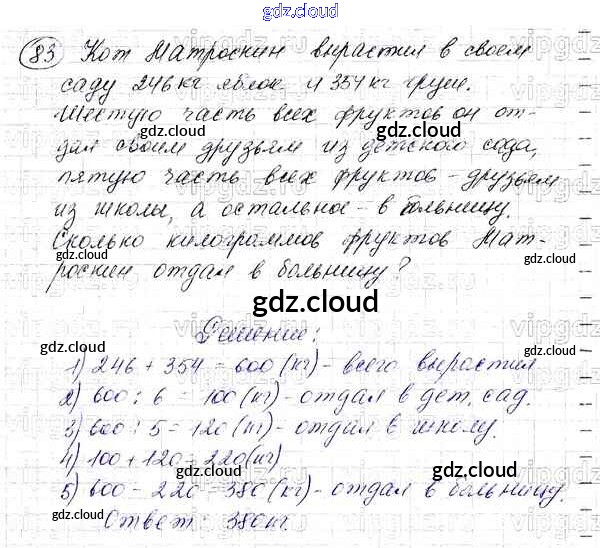 gdz.cloud
83 Кот Матроскин вырастил в своем
gdz.cloud
саду 246 кг яблок и 354 кг груш.
Шестую часть всех фруктов он от-
gdz.cloud gdz.cloud
дал своим друзьям из детского сада,
пятую часть всех фруктов - друзьям
из школы, а остальное - в больницу.
gdz.cloud gdz.cloud
Сколько килограммов фруктов Мат-
роскин отдал в больницу?
gdz.cloud
Решение:
gdz.cloud gdz.cloud
1) 246 + 354 = 600 (кг) - всего вырастил
2) 600 : 6 = 100 (кг) - отдал в дет. сад.
3) 600 : 5 = 120 (кг) - отдал в школу.
4) 100 + 120 = 220 (кг)
gdz.cloud gdz.cloud
5) 600 - 220 = 380 (кг) - отдал в больницу.
gdz.cloud gdz.cloud
Ответ: 380 кг.
gdz.cloud